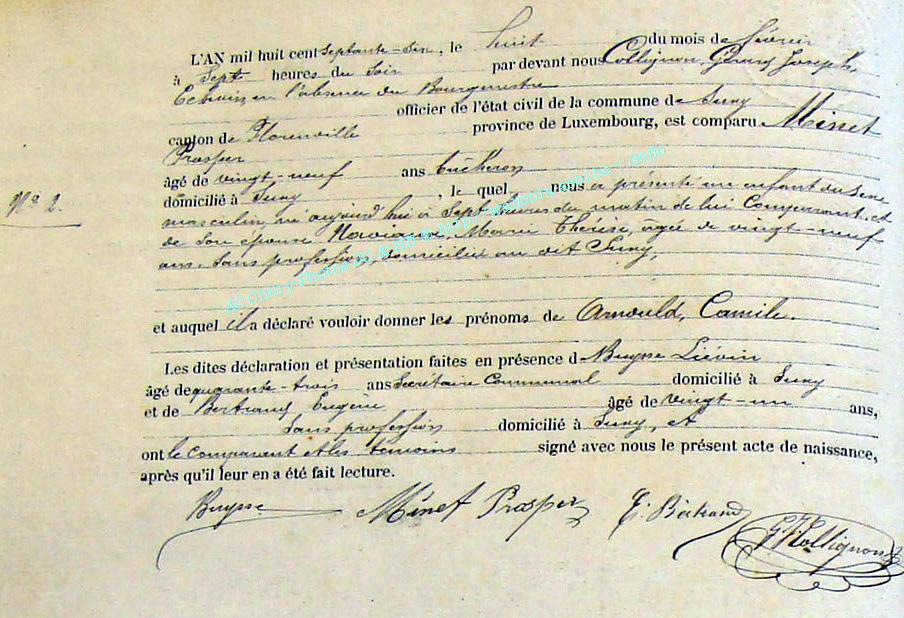 L'AN mil huit cent septante-six, le huit du mois de février
à Sept heures du Soir par devant nous Collignon, Gérard Joseph,
Echevin en l'absence du Bourgmestre
officier de l'état civil de la commune de Suny
canton de Florenville province de Luxembourg, est comparu Minet
Prosper
âgé de vingt-neuf ans bûcheron
N° 2.
domicilié à Suny, le quel nous a présenté un enfant du sexe
masculin, né aujourd'hui à Sept heures du matin de lui Comparant, et
de Son épouse Marie Thérèse, âgée de vingt-neuf
ans, Sans profession, domiciliée au dit Suny,
et auquel il a déclaré vouloir donner les prénoms de Arnould, Camile.
Les dites déclaration et présentation faites en présence d Buysse Liévin
âgé de quarante-trois ans Secrétaire Communal domicilié à Suny
et de Bertrand, Eugène âgé de vingt-un ans,
Sans profession domicilié à Suny, et
ont le comparant et les témoins signé avec nous le présent acte de naissance,
après qu'il leur en a été fait lecture.
Buysse Minet Prosper E. Bertrand
G J Collignon